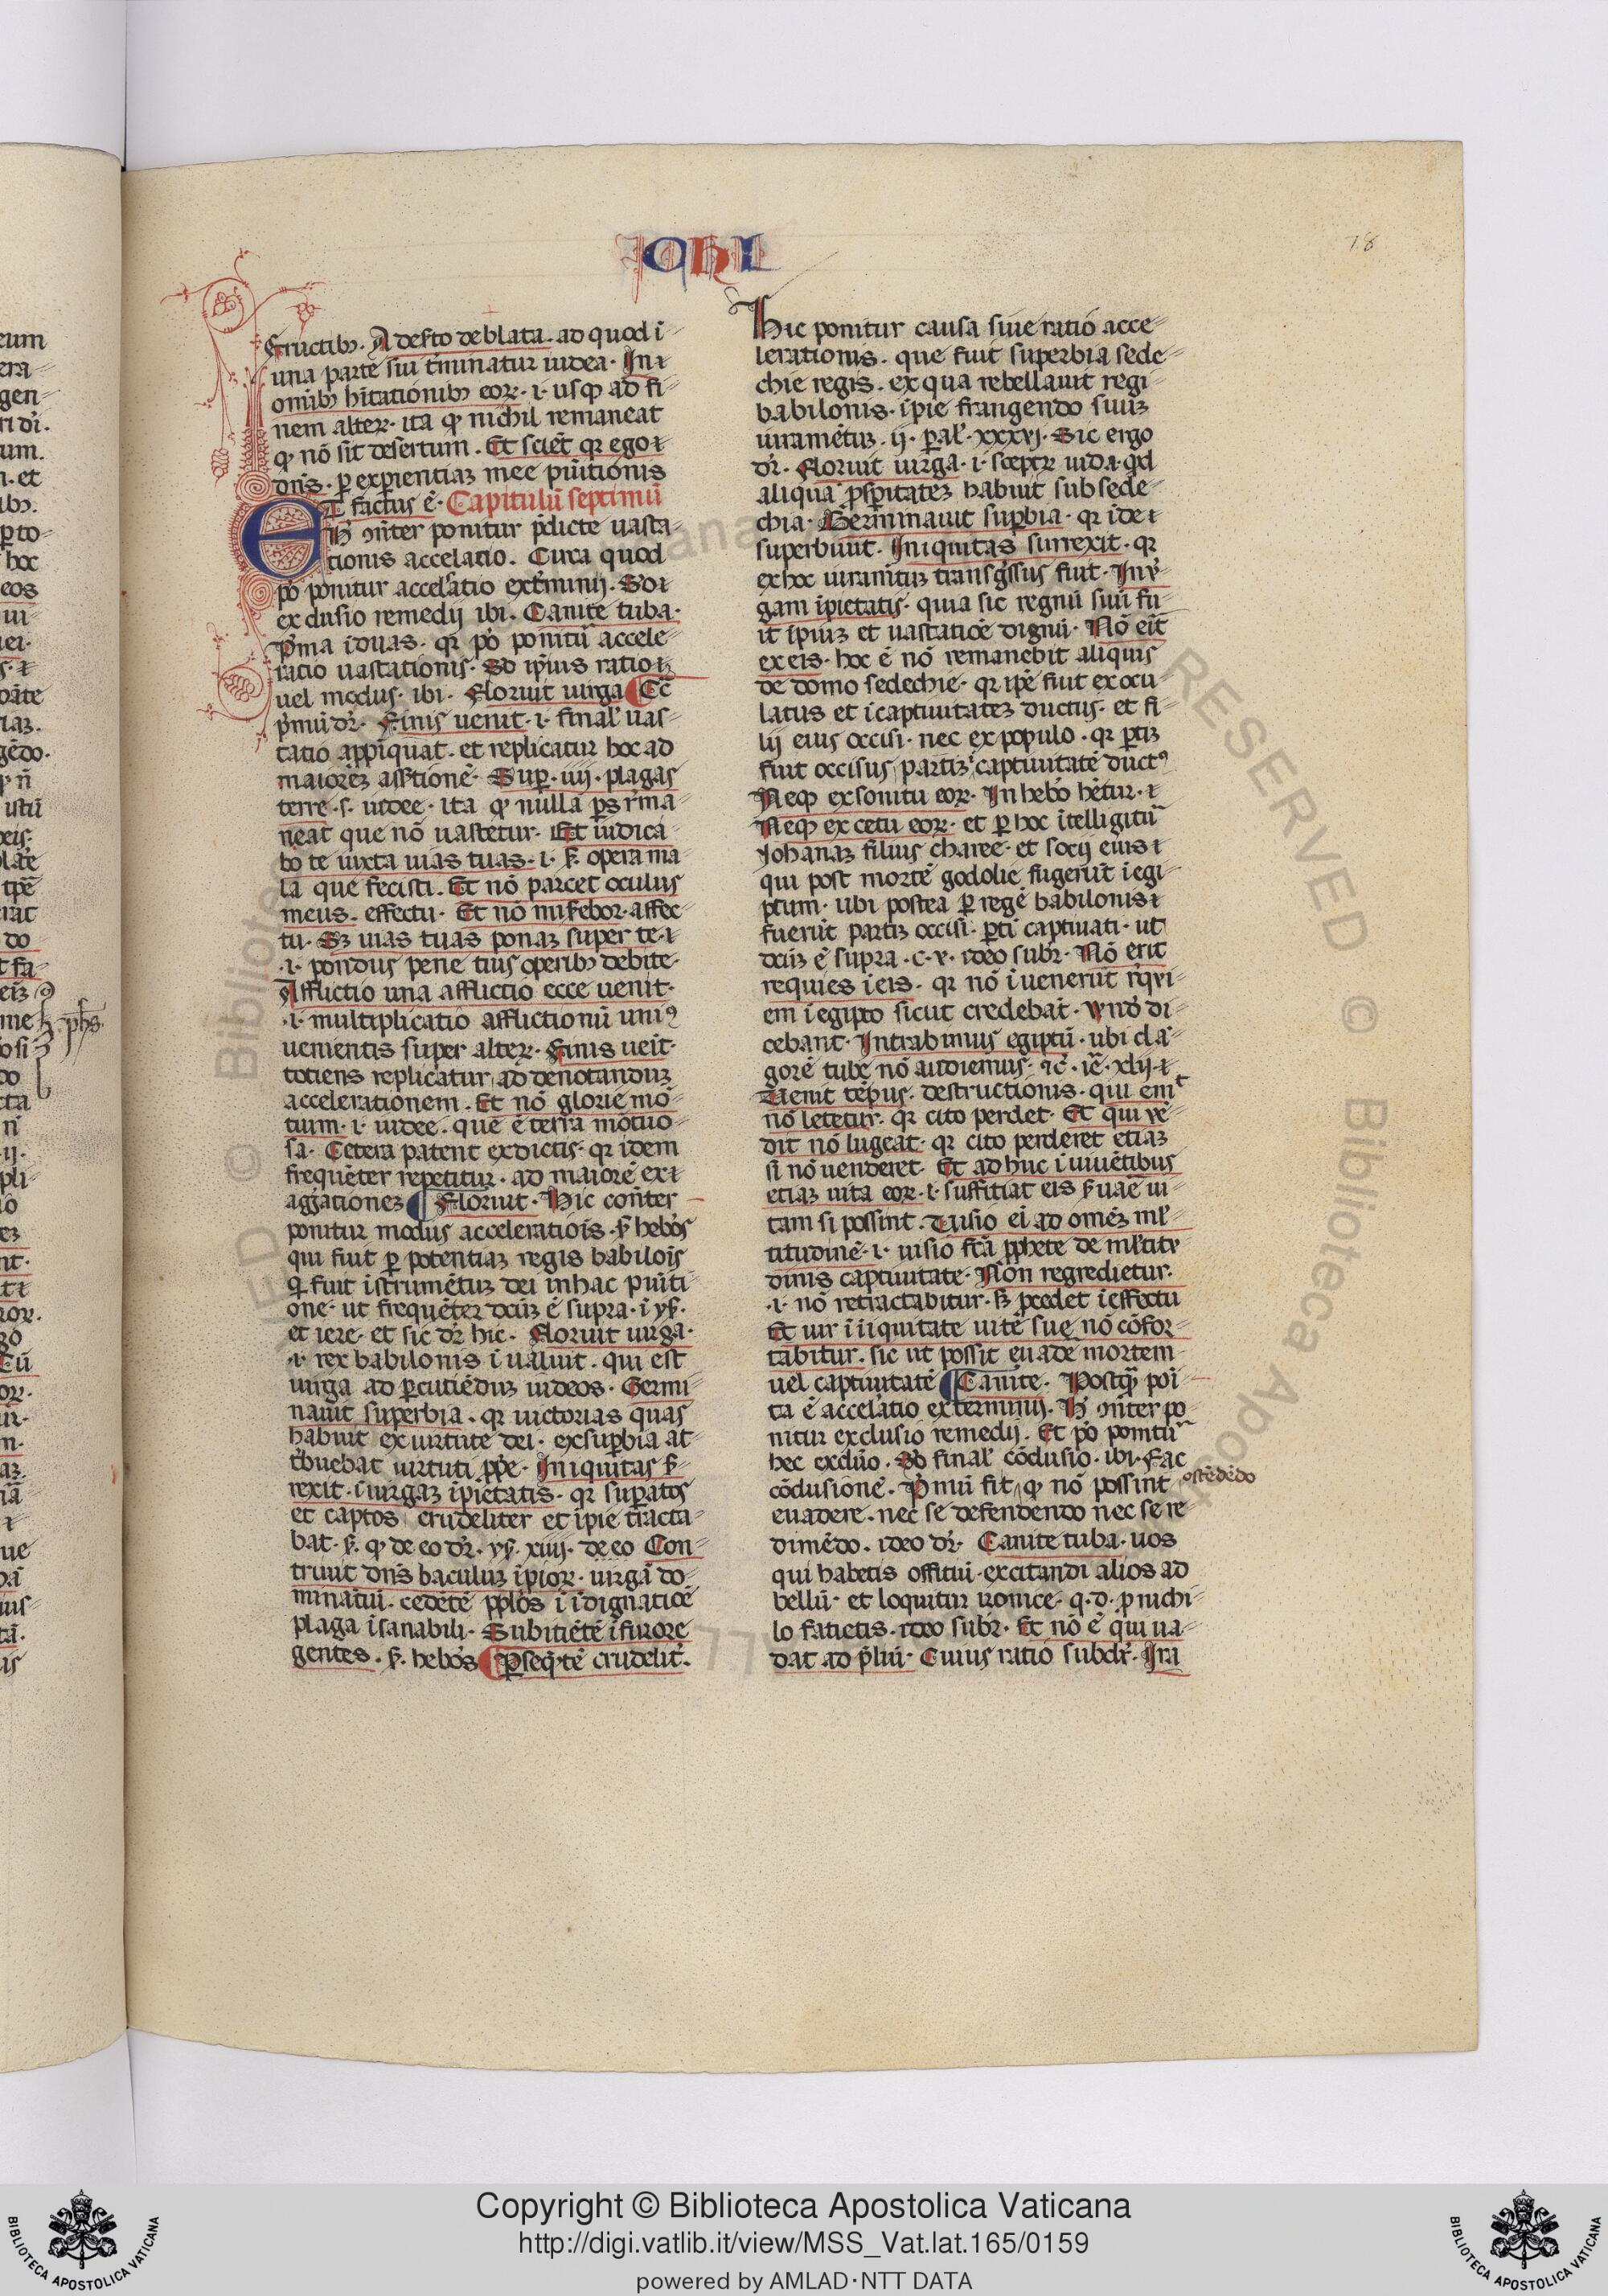 IQHL
78
fructibꝫ. A deserto deblata. ad quod i
una parte siu t̄minatur iudea. In
om̄ibꝫ hītationibꝫ eoꝝ. i. usqꝫ ad fi
nem alteꝝ. ita ꝙ nichil remaneat
ꝙ nō sit desertum. Et sciēt qꝛ ego
dn̄s. ꝑ experientiaꝫ mee pūitionis
ET factus ē. Capitulū septimū
Hic 9n̄ter ponitur p̄dicte uasta
tionis accelatio. Circa quod
pō ponitur accel'atio ext̄minij. So
exclusio remedij ibi. Canite tuba.
P̄ma i duas. qꝛ pō ponitur accele
ratio uastationis. So ip̄ius ratio
uel modus. ibi. Floruit uirga ¶ Cc̄
p̄mū dꝛ̄. Finis uenit. i. final' uas
tatio app̄iquat. et replicatur hoc ad
maiorēꝫ assertionē. Suꝑ. iiij. plagas
terre. s. iudee. ita ꝙ nulla ꝑs r̄ma
neat que nō uastetur. Et iudica
bo te iuxta uias tuas. i. s̄. opera ma
la que fecisti. Et nō parcet oculus
meus. effectu. Et nō mis̄ebor. affec
tu. Sꝫ uias tuas ponaꝫ super te.
.i. pondus pene tuis operibꝫ debite.
Afflictio una afflictio ecce uenit.
.i. multiplicatio afflictionū uni9
uenientis super alteꝝ. Finis ueīt.
totiens replicatur ad denotanduꝫ
accelerationem. Et nō glorie mō
tium. i. iudee. que ē terra mōtuo
sa. Cetera patent ex dictis. qꝛ idem
frequēter repetitur. ad maiorē ex
agḡationeꝫ ¶ Floruit. Hic cōn̄ter
ponitur modus acceleratiōis. s̄ hebōs
qui fuit ꝑ potentiaꝫ regis babilōīs
q̄ fuit istrumētuꝫ dei in hac pūiti
one. ut frequēter dcūꝫ ē supra. i ys̄.
et iere. et sic dꝛ̄ hic. Floruit uirga.
.i. rex babilonis i ualuit. qui est
uirga ad ꝑcutiēduꝫ iudeos. Germi
nauit superbia. qꝛ uictorias quas
habuit ex uirtute dei. ex suꝑbia at
t̄buebat uirtuti ꝓp̄e. Iniquitas s̄
rexit. i uirgaꝫ īpietatis. qꝛ suꝑatos
et captos crudeliter et ipie tracta
bat. s̄. ꝙ de eo dꝛ̄. ys̄. xiiij. de eo Con
triuit dn̄s baculuꝫ īpioꝝ. uirgā do
minātiū. cedētē pp̄lōs i īdignatiōē
plaga isanabili. Subitiētē i furore
gentes. s̄. hebōs ¶ ꝑseq̄tē crudelit̄.
Hic ponitur causa siue ratio acce
lerationis. que fuit superbia sede
chie regis. ex qua rebellauit regi
babilonis. ipie frangendo suuꝫ
iuramētuꝫ. ij. ꝑal'. xxxvj. Sic ergo
dꝛ̄. Floruit uirga. i. sceptꝝ iuda. qd
aliquā ꝓsꝑitateꝫ habuit sub sede
chia. Germinauit suꝑbia. qꝛ īde
superbiuit. Iniquitas surrexit. qꝛ
ex hoc iuramtuꝫ transg̃ssus fuit. In uir̄
gam ipietatis. quia sic regnū suū fu
it ipiuꝫ et uastatiōē dignū. Nō eīt
ex eis. hoc ē nō remanebit aliquis
de domo sedechie. qꝛ ip̄e fuit exocu
latus et i captiuitateꝫ ductus. et fi
lij eius occisi. nec ex populo. qꝛ ꝑtiꝫ
fuit occisus partiꝫ captiuitatē duct9
Neqꝫ ex sonitu eoꝝ. In hebō hētur.
Neqꝫ ex cetu eoꝝ. et ꝑ hoc ītelligitur
Johanaꝫ filius charee. et socij eius
qui post mortē godolie fugerūt i egi
ptum. ubi postea ꝑ regē babilonis
fuerūt partiꝫ occisi. ꝑti captiuati. ut
dcūꝫ ē supra. c. v. ideo subꝛ̄. Nō erit
requies i eis. qꝛ nō i uenerūt r̄qui
em i egipto sicut credebāt. q̄nō di
cebant. Intrabimus egiptū. ubi clā
gorē tube nō audiemus. ⁊c̄. ie̅. xlij.
Uenit tēpus. destructionis. qui emit
nō letetur. qꝛ cito perdet. Et qui uē
dit nō lugeat. qꝛ cito perderet etiaꝫ
si nō uenderet. Et ad huc i uiuētibus
etiaꝫ uita eoꝝ. i. suffitiat eis s̄uae ui
tam si possint. Uisio eī ad omēꝫ ml'
titudinē. i. uisio fc̄ā ꝓphete de ml'titu
dinis captiuitate. Non regredietur.
.i. nō retractabitur. sꝫ ꝓcedet i effectu
Et uir i iiquitate uite sue nō cōfor
tabitur. sic ut possit euade mortem
uel captiuitatē ¶ Canite. Postq̄ poī
ta ē accel'atio exterminij. H̄ 9n̄ter po
nitur exclusio remedij. Et pō ponitur
hec exclūo. So final' cōclusio. ibi. Fac
cōclusionē. P̄mū fit ꝙ nō possint ostēdēdo
euadere. nec se defendendo nec se re
dimēdo. ideo dꝛ̄. Canite tuba. uos
qui habetis offitiū. excitandi alios ad
bellū. et loquitur yronice. q.d. ꝓ nichi
lo fatietis. ideo subꝛ̄. Et nō ē qui ua
dat ad p̄liū. Cuius ratio subdꝛ̄. Ira
Copyright © Biblioteca Apostolica Vaticana
http://digi.vatlib.it/view/MSS_Vat.lat.165/0159
powered by AMLAD·NTT DATA
BIBLIOTECA APOSTOLICA VATICANA
BIBLIOTECA APOSTOLICA VATICANA